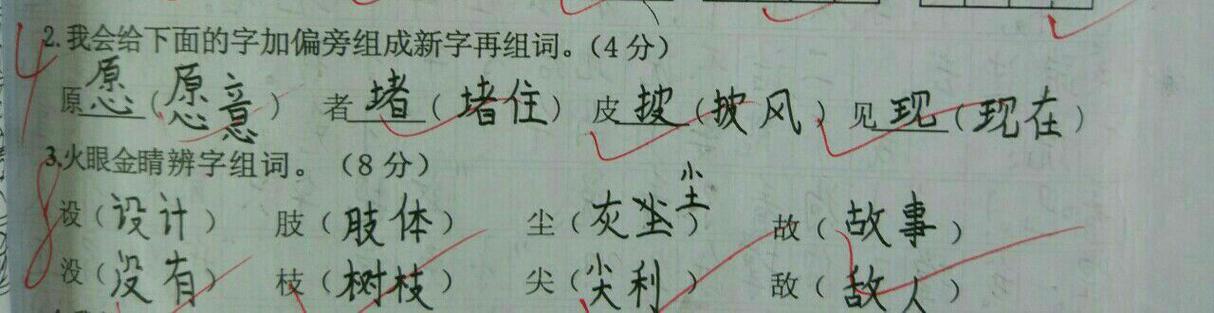 2.我会给下面的字加偏旁组成新字再组词。(4分)
原愿(愿意) 者堵(堵住) 皮披(披风) 见现(现在)
3.火眼金睛辨字组词。(8分)
设(设计) 肢(肢体) 尘(灰尘) 故(故事)
没(没有) 枝(树枝) 尖(尖利) 敌(敌人)
4
8